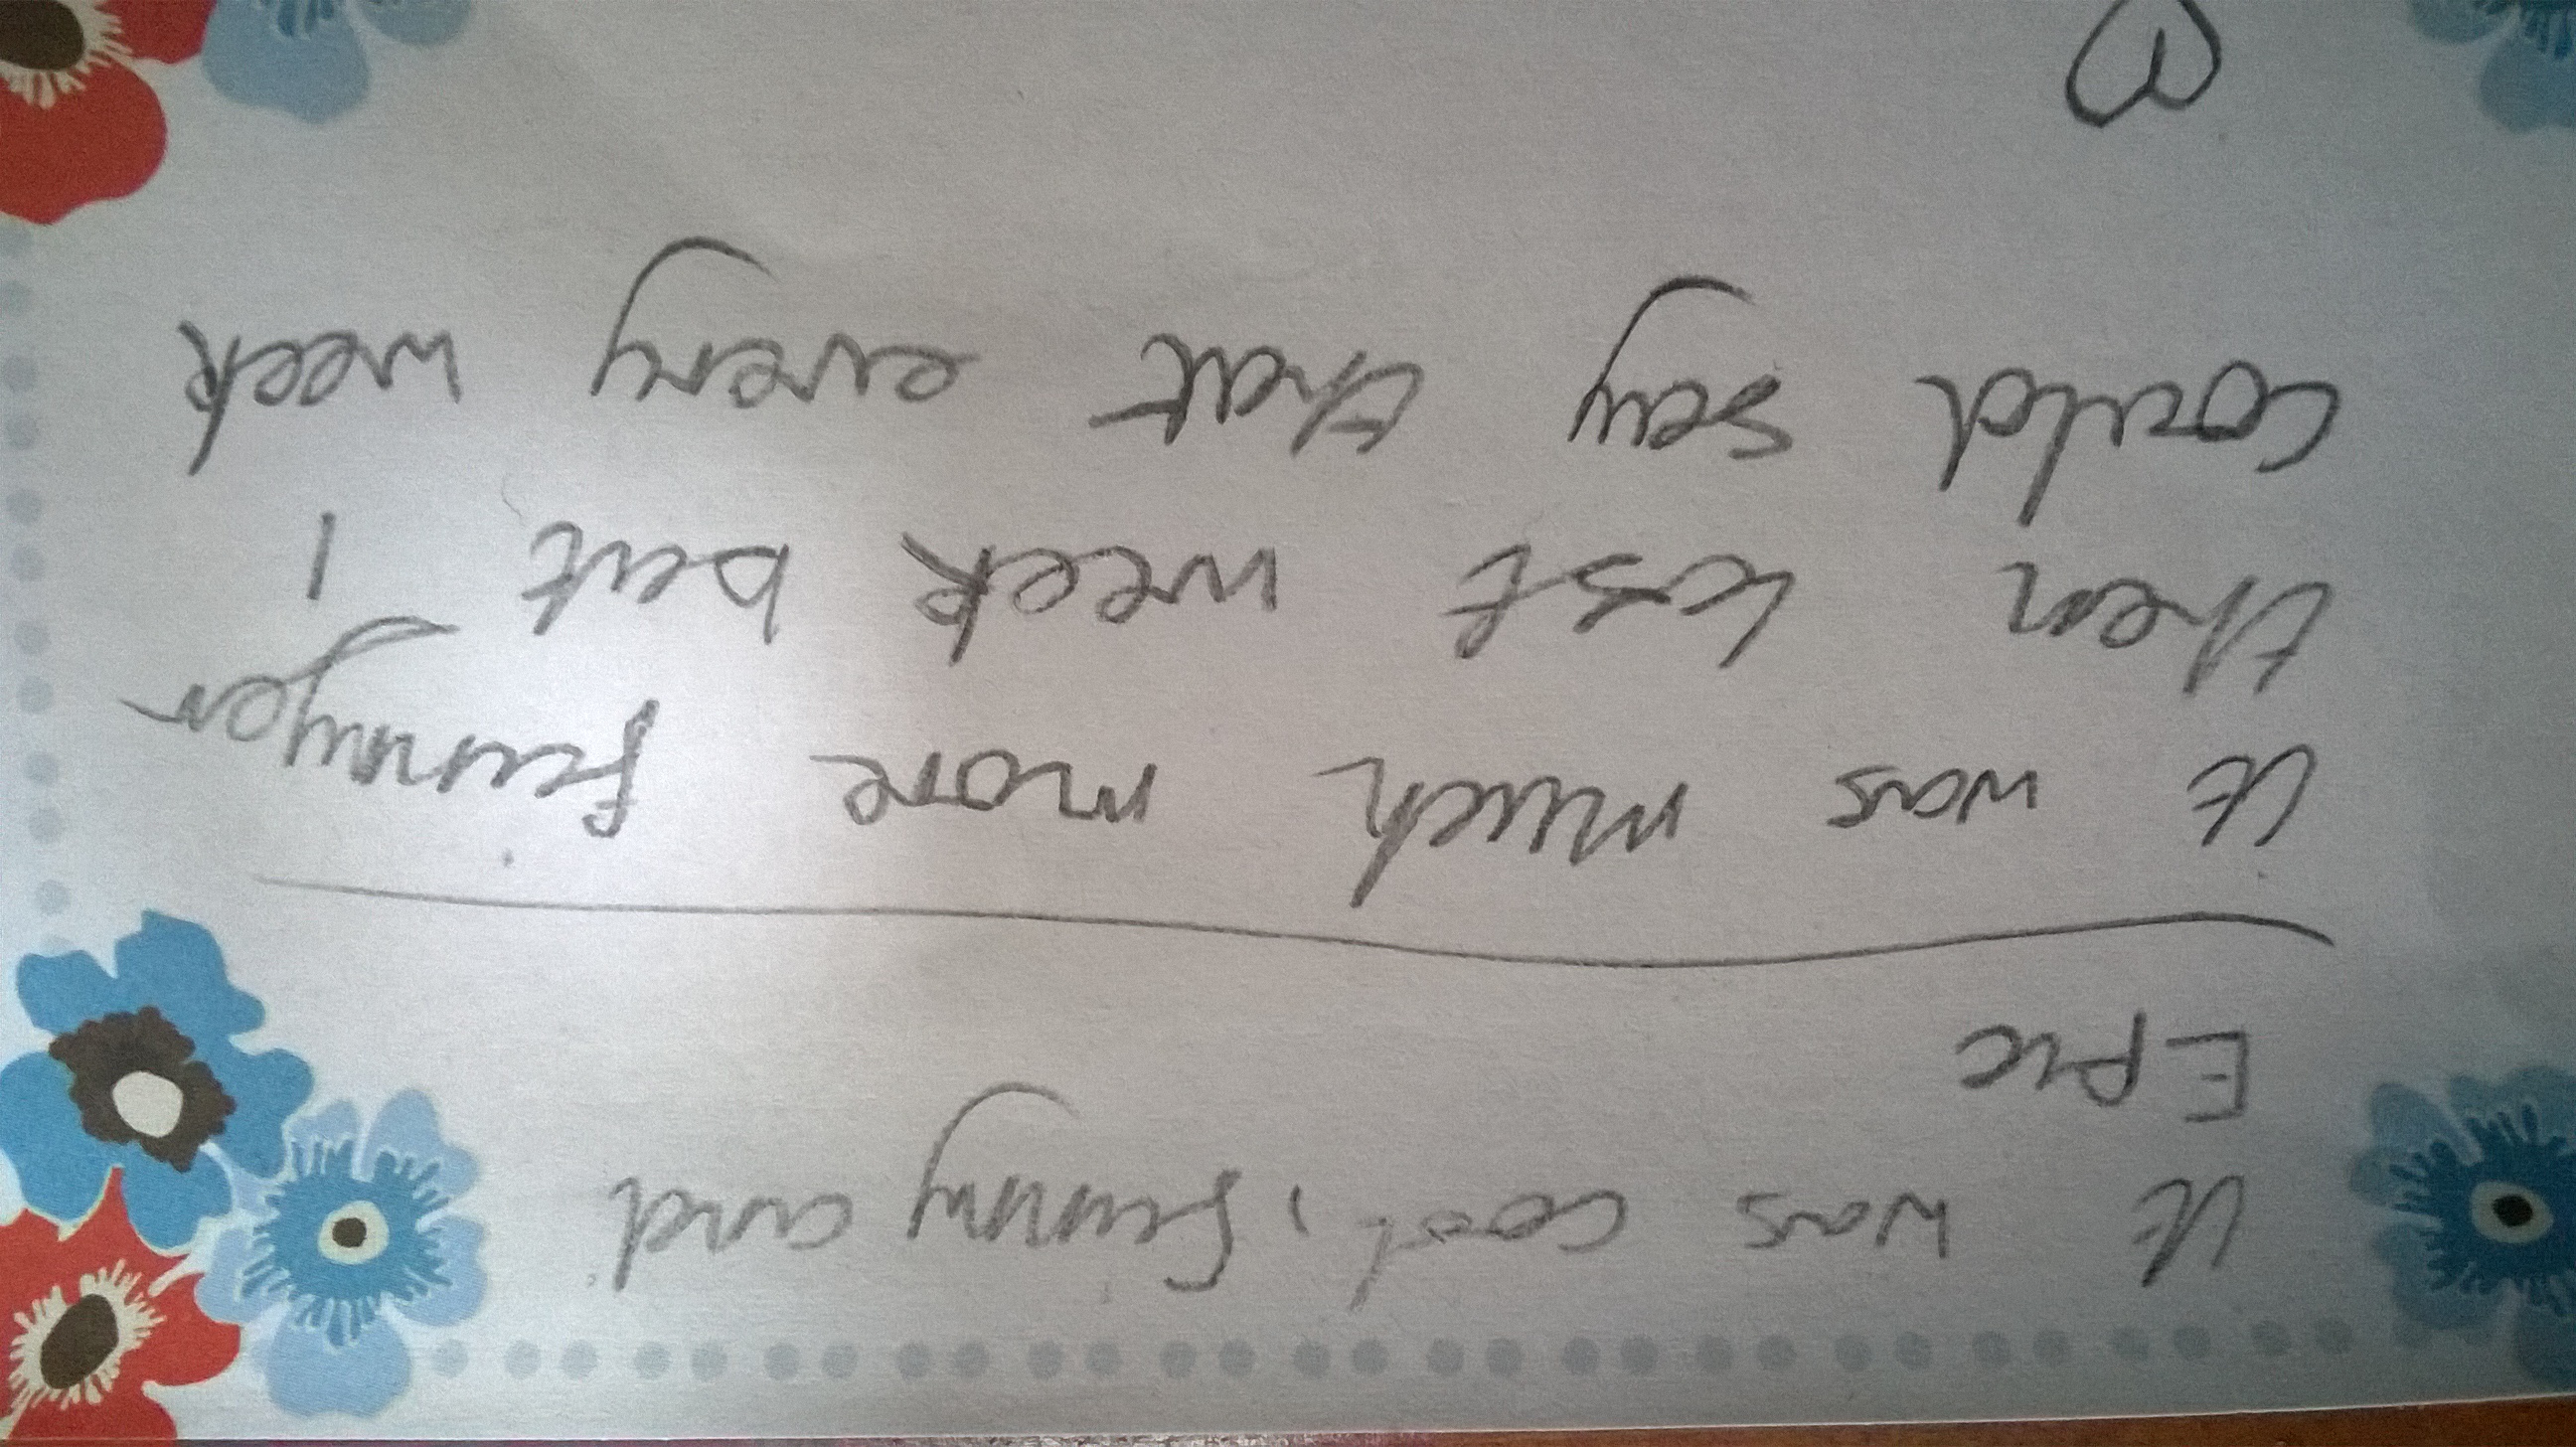 it was cool, funny and
Epic
it was much more funnyer
then last week but I
could say that every week